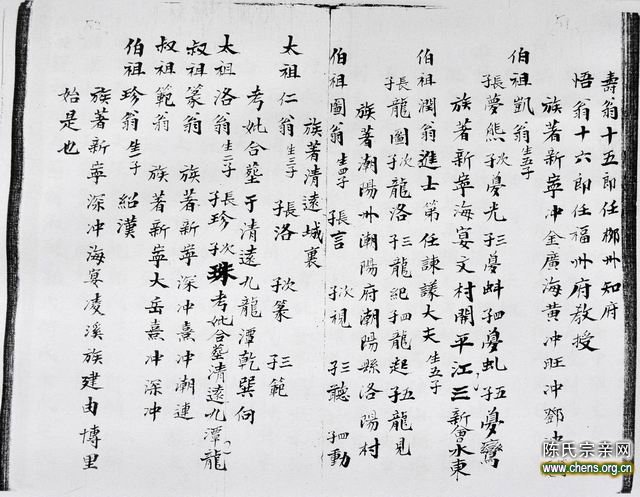 壽翁十五郎任柳州知府
悟翁十六郎任福州府教授
族著新寧冲金廣海黃冲旺冲鄧
伯祖凱翁生五子
長夢熊次子夢光三子夢蚪四子夢虬五子夢鸞
族著新寧海宴文村開平江三新會水東
伯祖潤翁進士第任諫議大夫生五子
長子龍圖次子龍洛三子龍紀四子龍起五子龍見
族著潮陽州潮陽府潮陽縣洛陽村
伯祖圖翁生四子 長子言 次子視 三子聽 四子動
族著清遠城裏
太祖仁翁生三子 長子洛 次子篆 三子範
考妣合墓于清遠九龍潭乾巽向
太祖洛翁生二子長子珍次子珠考妣合墓清遠九潭龍
叔祖篆翁 族著新寧深冲熹冲潮連
叔祖範翁 族著新寧大岳熹冲深冲
伯祖珍翁生一子紹漢
族著新寧深冲海宴凌溪族建由博里
始是也
陈氏宗亲网
www.chens.org.cn